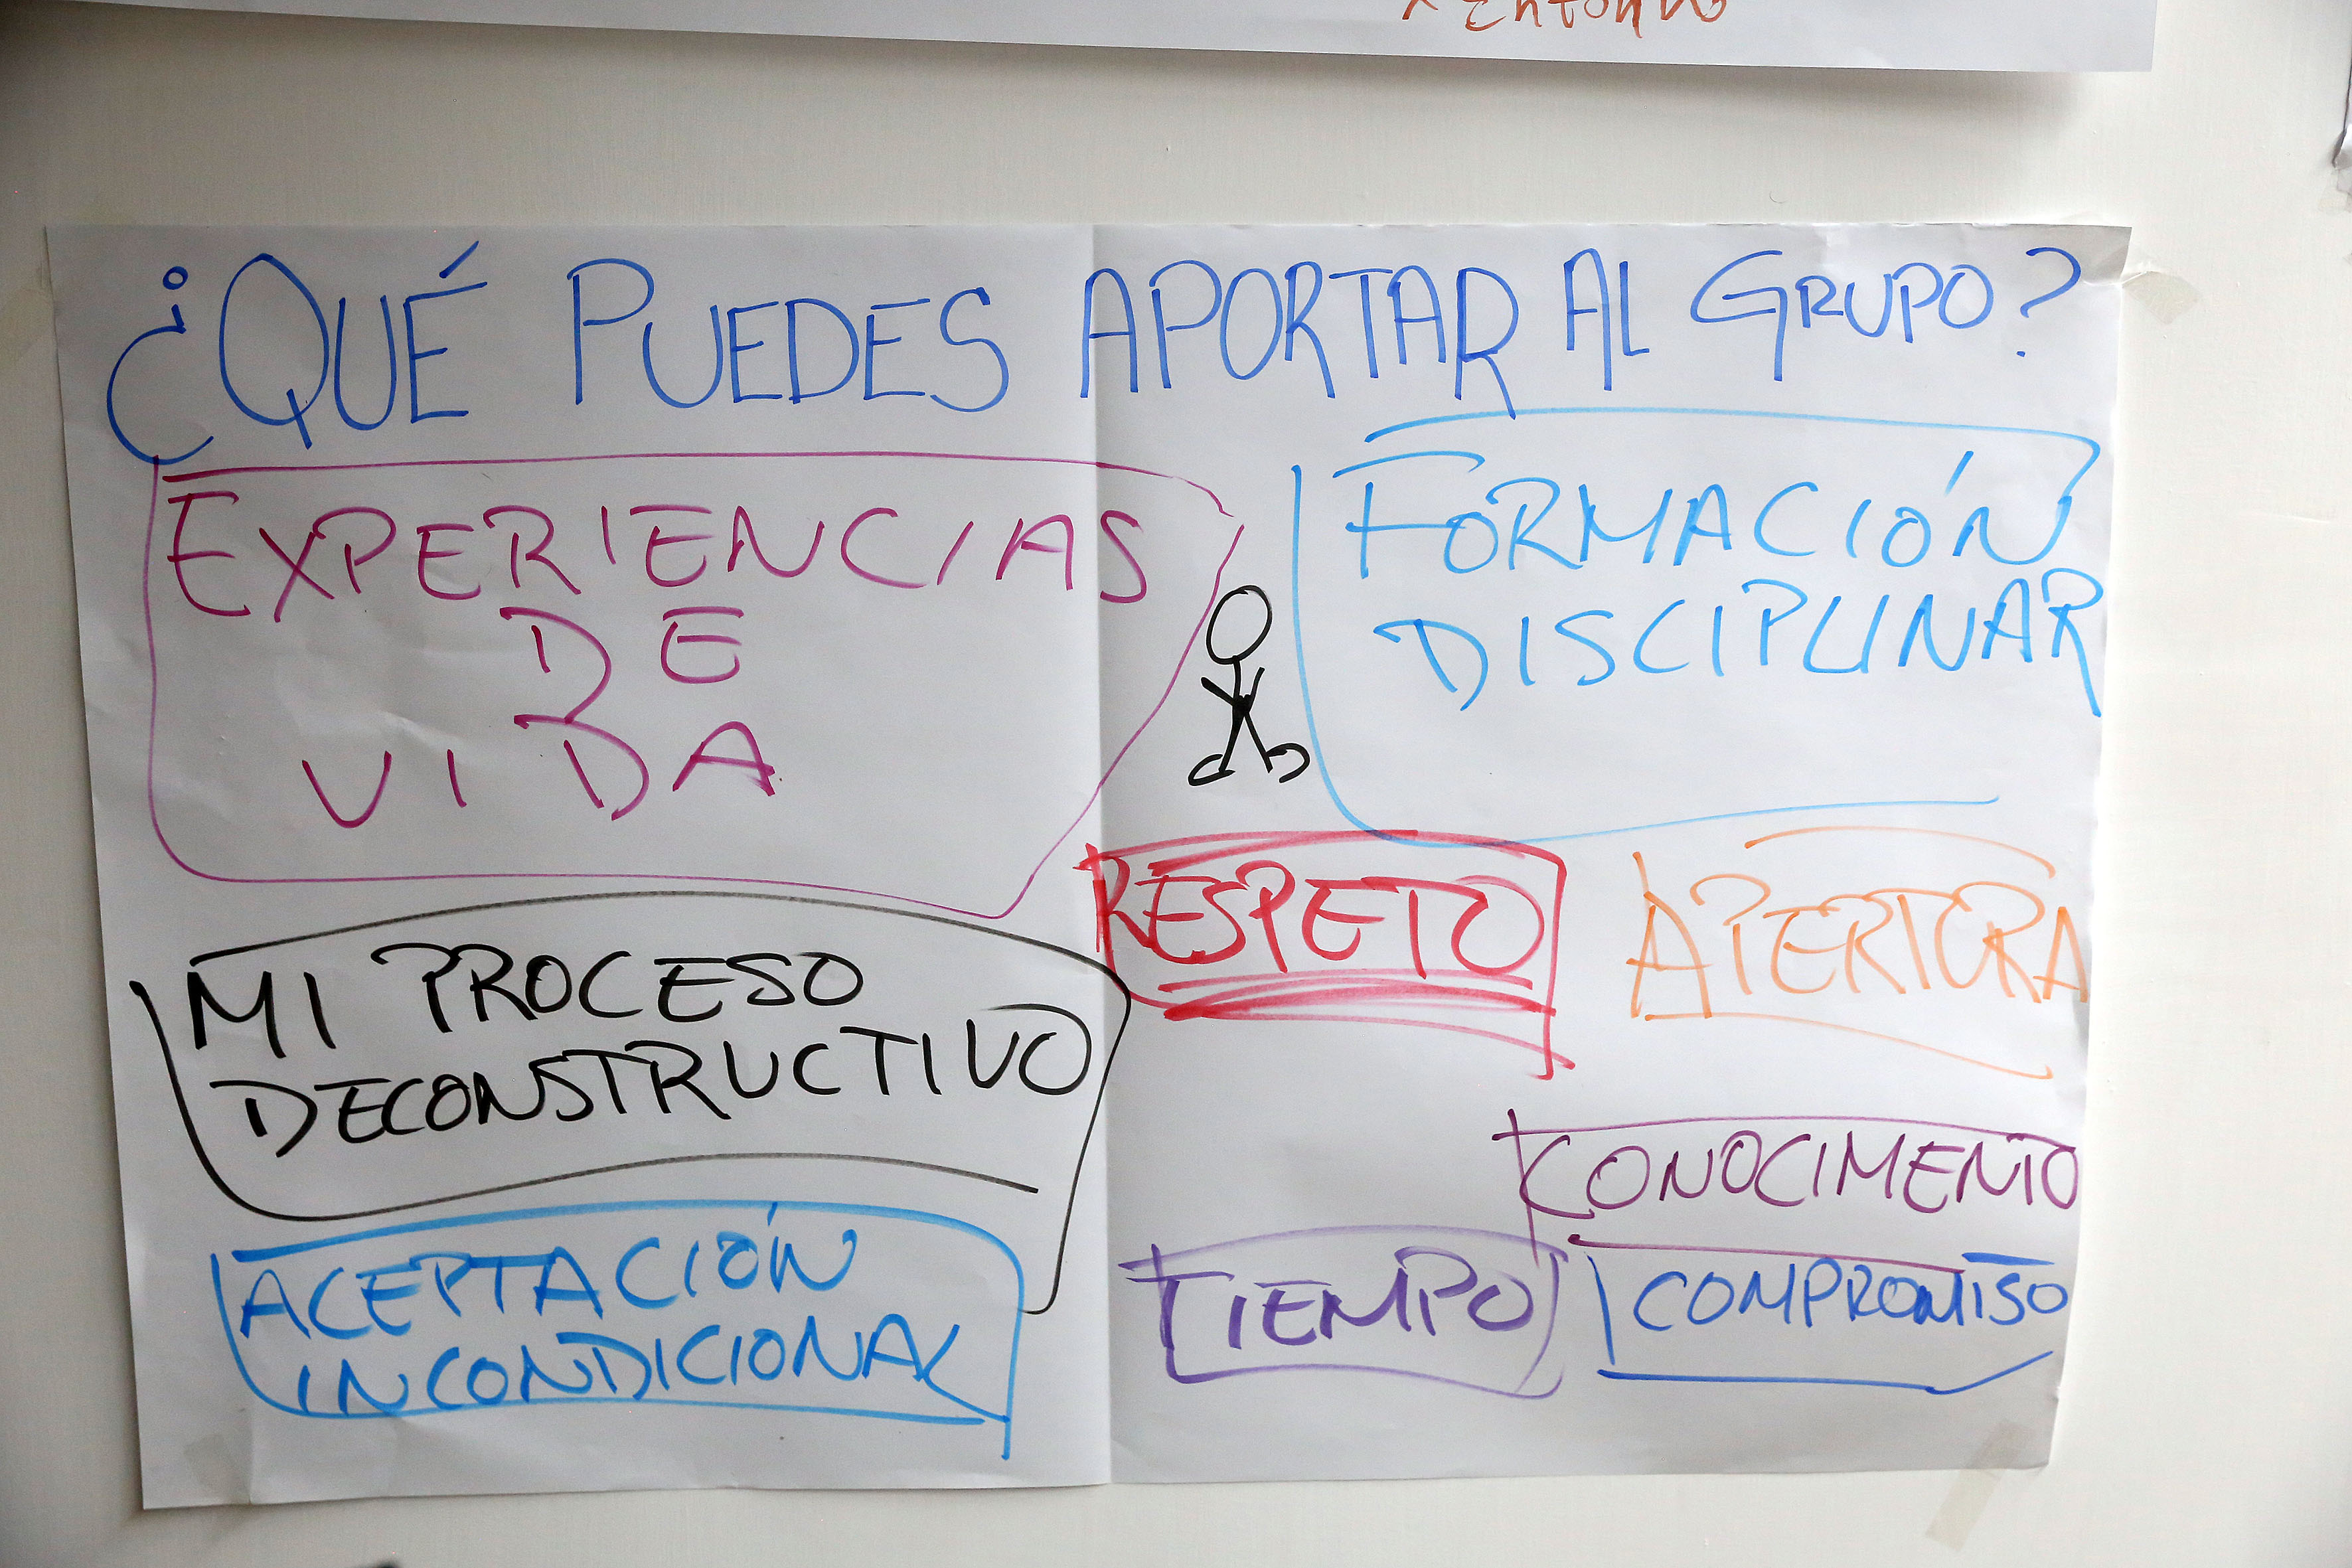 Entorno
¿QUÉ PUEDES APORTAR AL GRUPO?
EXPERIENCIAS
DE
VIDA
FORMACIÓN
DISCIPLINAR
RESPETO
APERTURA
MI PROCESO
DECONSTRUCTIVO
CONOCIMENTO
ACEPTACIÓN
INCONDICIONAL
TIEMPO
COMPROMISO